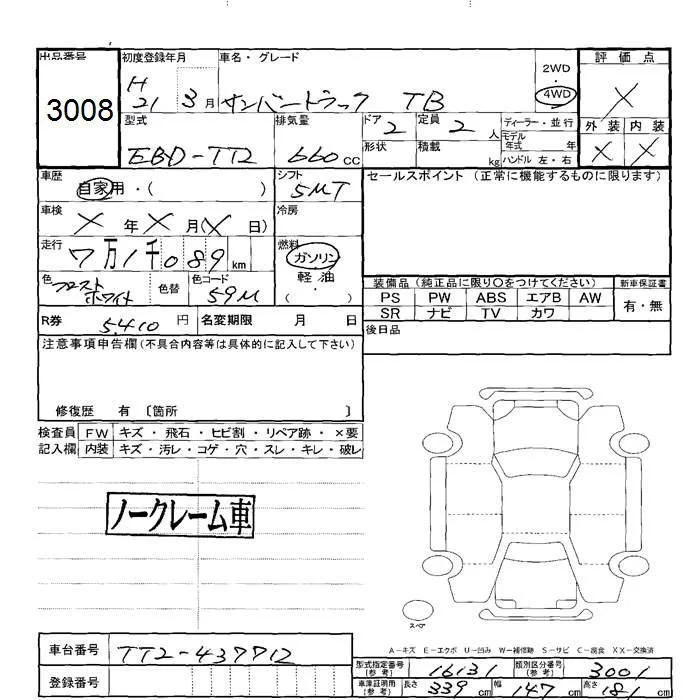 出品番号 初度登録年月 車名・グレード 評価点
3008 H21 3月 サンバートラック TB 2WD・4WD X
型式 排気量 ドア 定員 ディーラー・並行 外装 内装
EBD-TT2 660cc 2 2人 モデル年式 年 X X
形状 積載 kg ハンドル 左・右
車歴 自家用・( ) シフト 5MT セールスポイント (正常に機能するものに限ります)
車検 X年X月(X日) 冷房
走行 7万1千089km 燃料 ガソリン 軽油・( )
色 フロストホワイト 色替 色コード 59M
装備品(純正品に限り〇をつけてください) 新車保証書
PS PW ABS エアB AW 有・無
SR ナビ TV カワ
R券 5410円 名変期限 月 日 後日品
注意事項申告欄(不具合内容等は具体的に記入して下さい)
修復歴 有 〔箇所 〕
検査員 FW キズ・飛石・ヒビ割・リペア跡・×要
記入欄 内装 キズ・汚レ・コゲ・穴・スレ・キレ・破レ
ノークレーム車
スペア
A−キズ E−エクボ U−凹み W−補修跡 S−サビ C−腐食 XX−交換済
車台番号 TT2-437712
型式指定番号(参考) 16131 類別区分番号(参考) 3001
登録番号
車庫証明用(参考) 長さ 339cm 幅 147cm 高さ 181cm